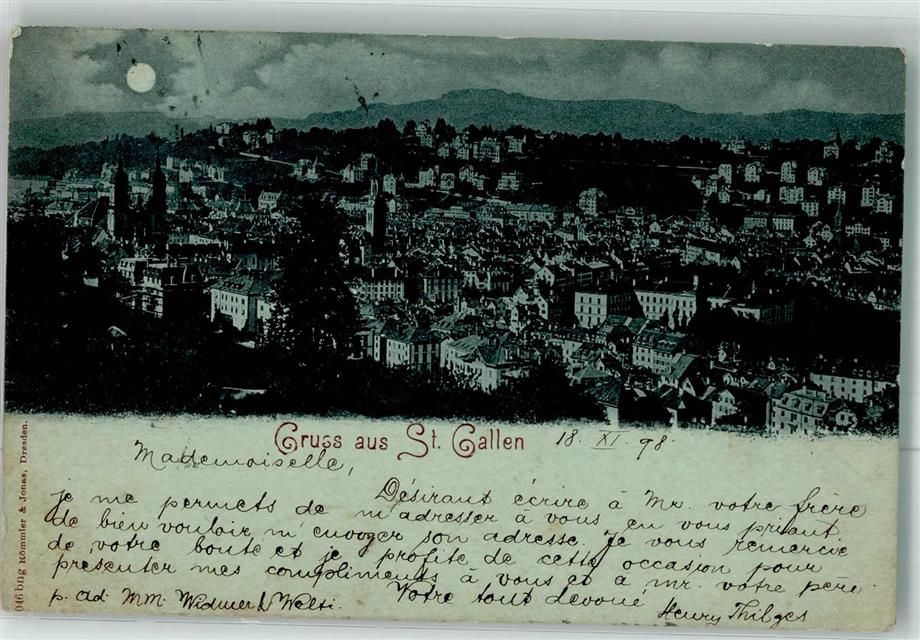 Gruss aus St. Gallen 18. XI. 98.
Mademoiselle,
Désirant écrire à Mr. votre frère
je me permets de m'adresser à vous en vous priant
de bien vouloir m'envoyer son adresse. Je vous remercie
de votre bonté et je profite de cette occasion pour
présenter mes compliments à vous et à mr. votre père.
Votre tout dévoué
p. ad. MM. Widmer & Welti. Henry Thilges
Römmler & Jonas, Dresden.